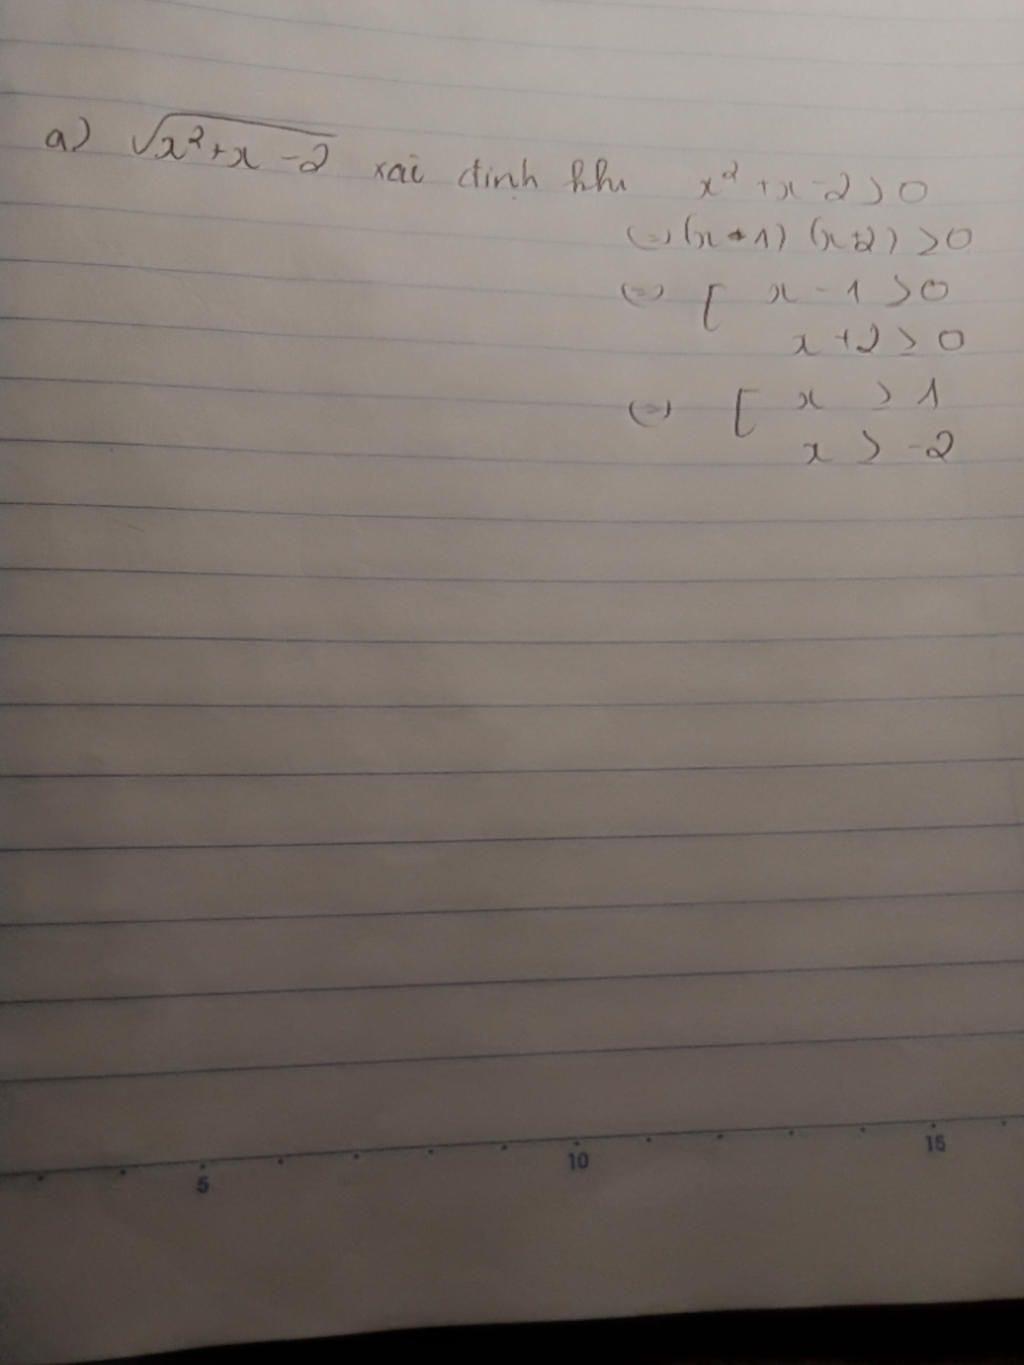 a) √x²+x-2 xác định khi x²+x-2>0
(=) (x-1) (x+2) >0
(=) [ x-1>0
x+2>0
(=) [ x > 1
x > -2
5 10 15